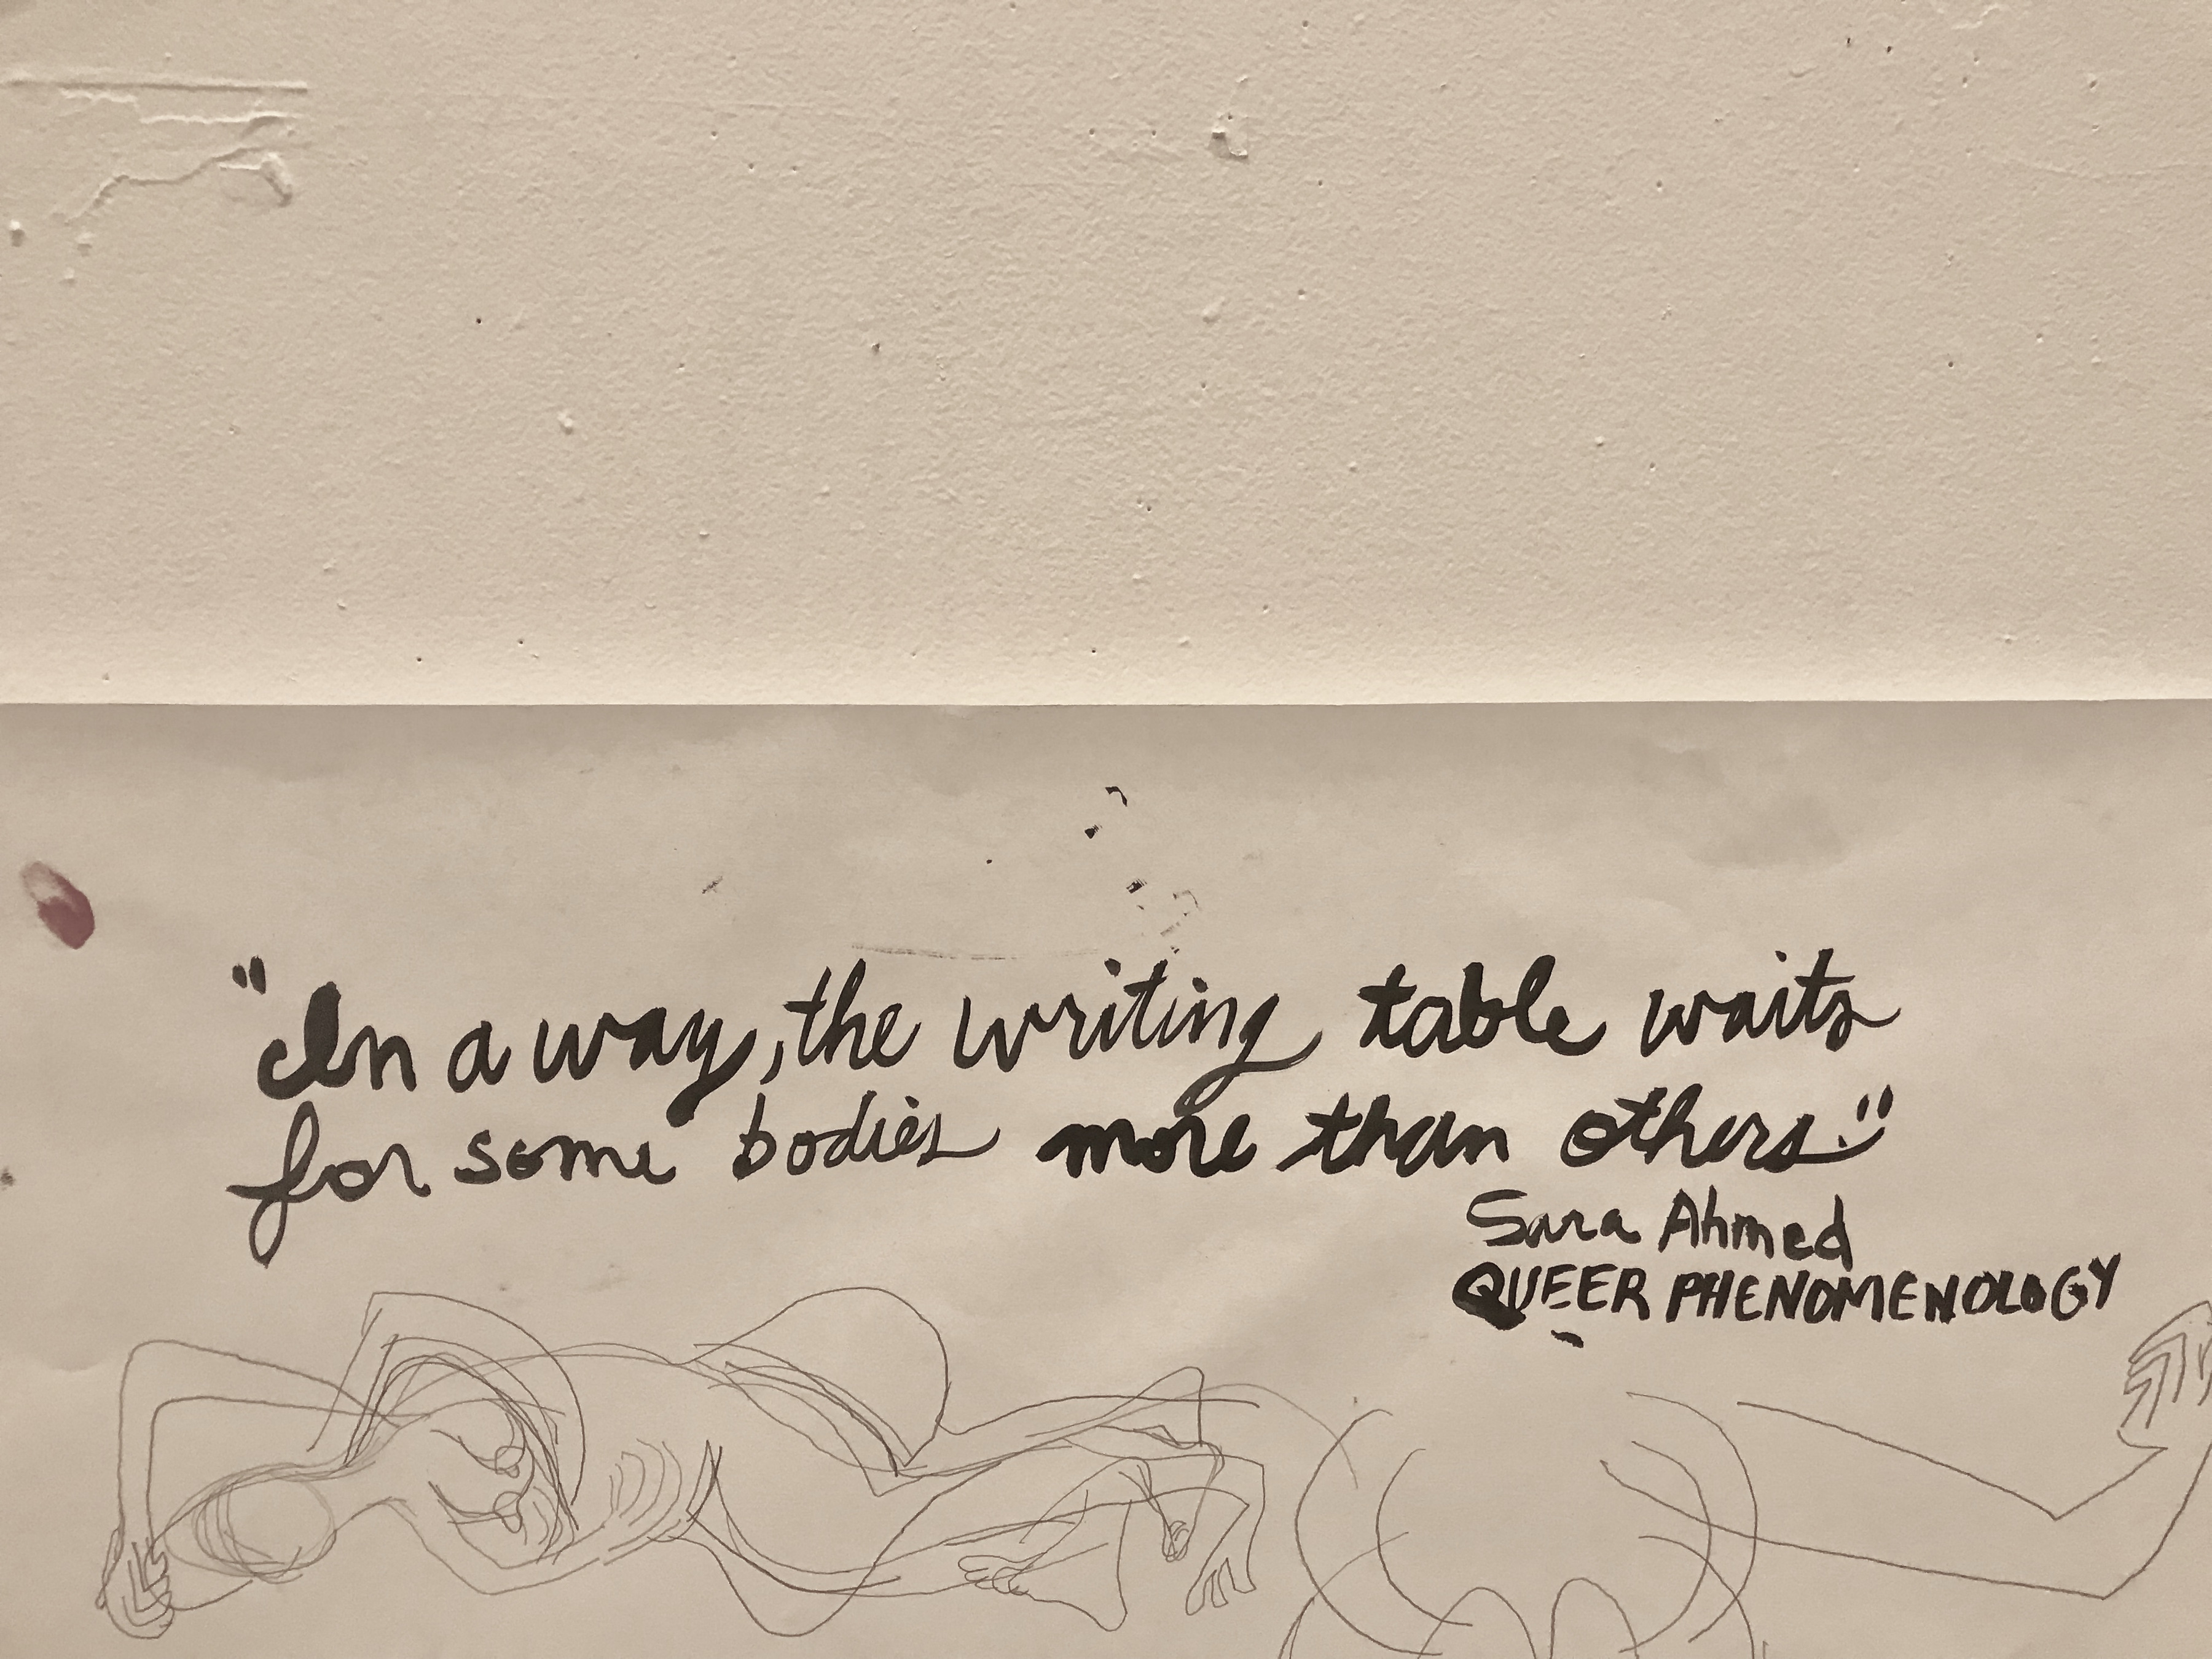 "In a way, the writing table waits
for some bodies more than others."
Sara Ahmed
QUEER PHENOMENOLOGY